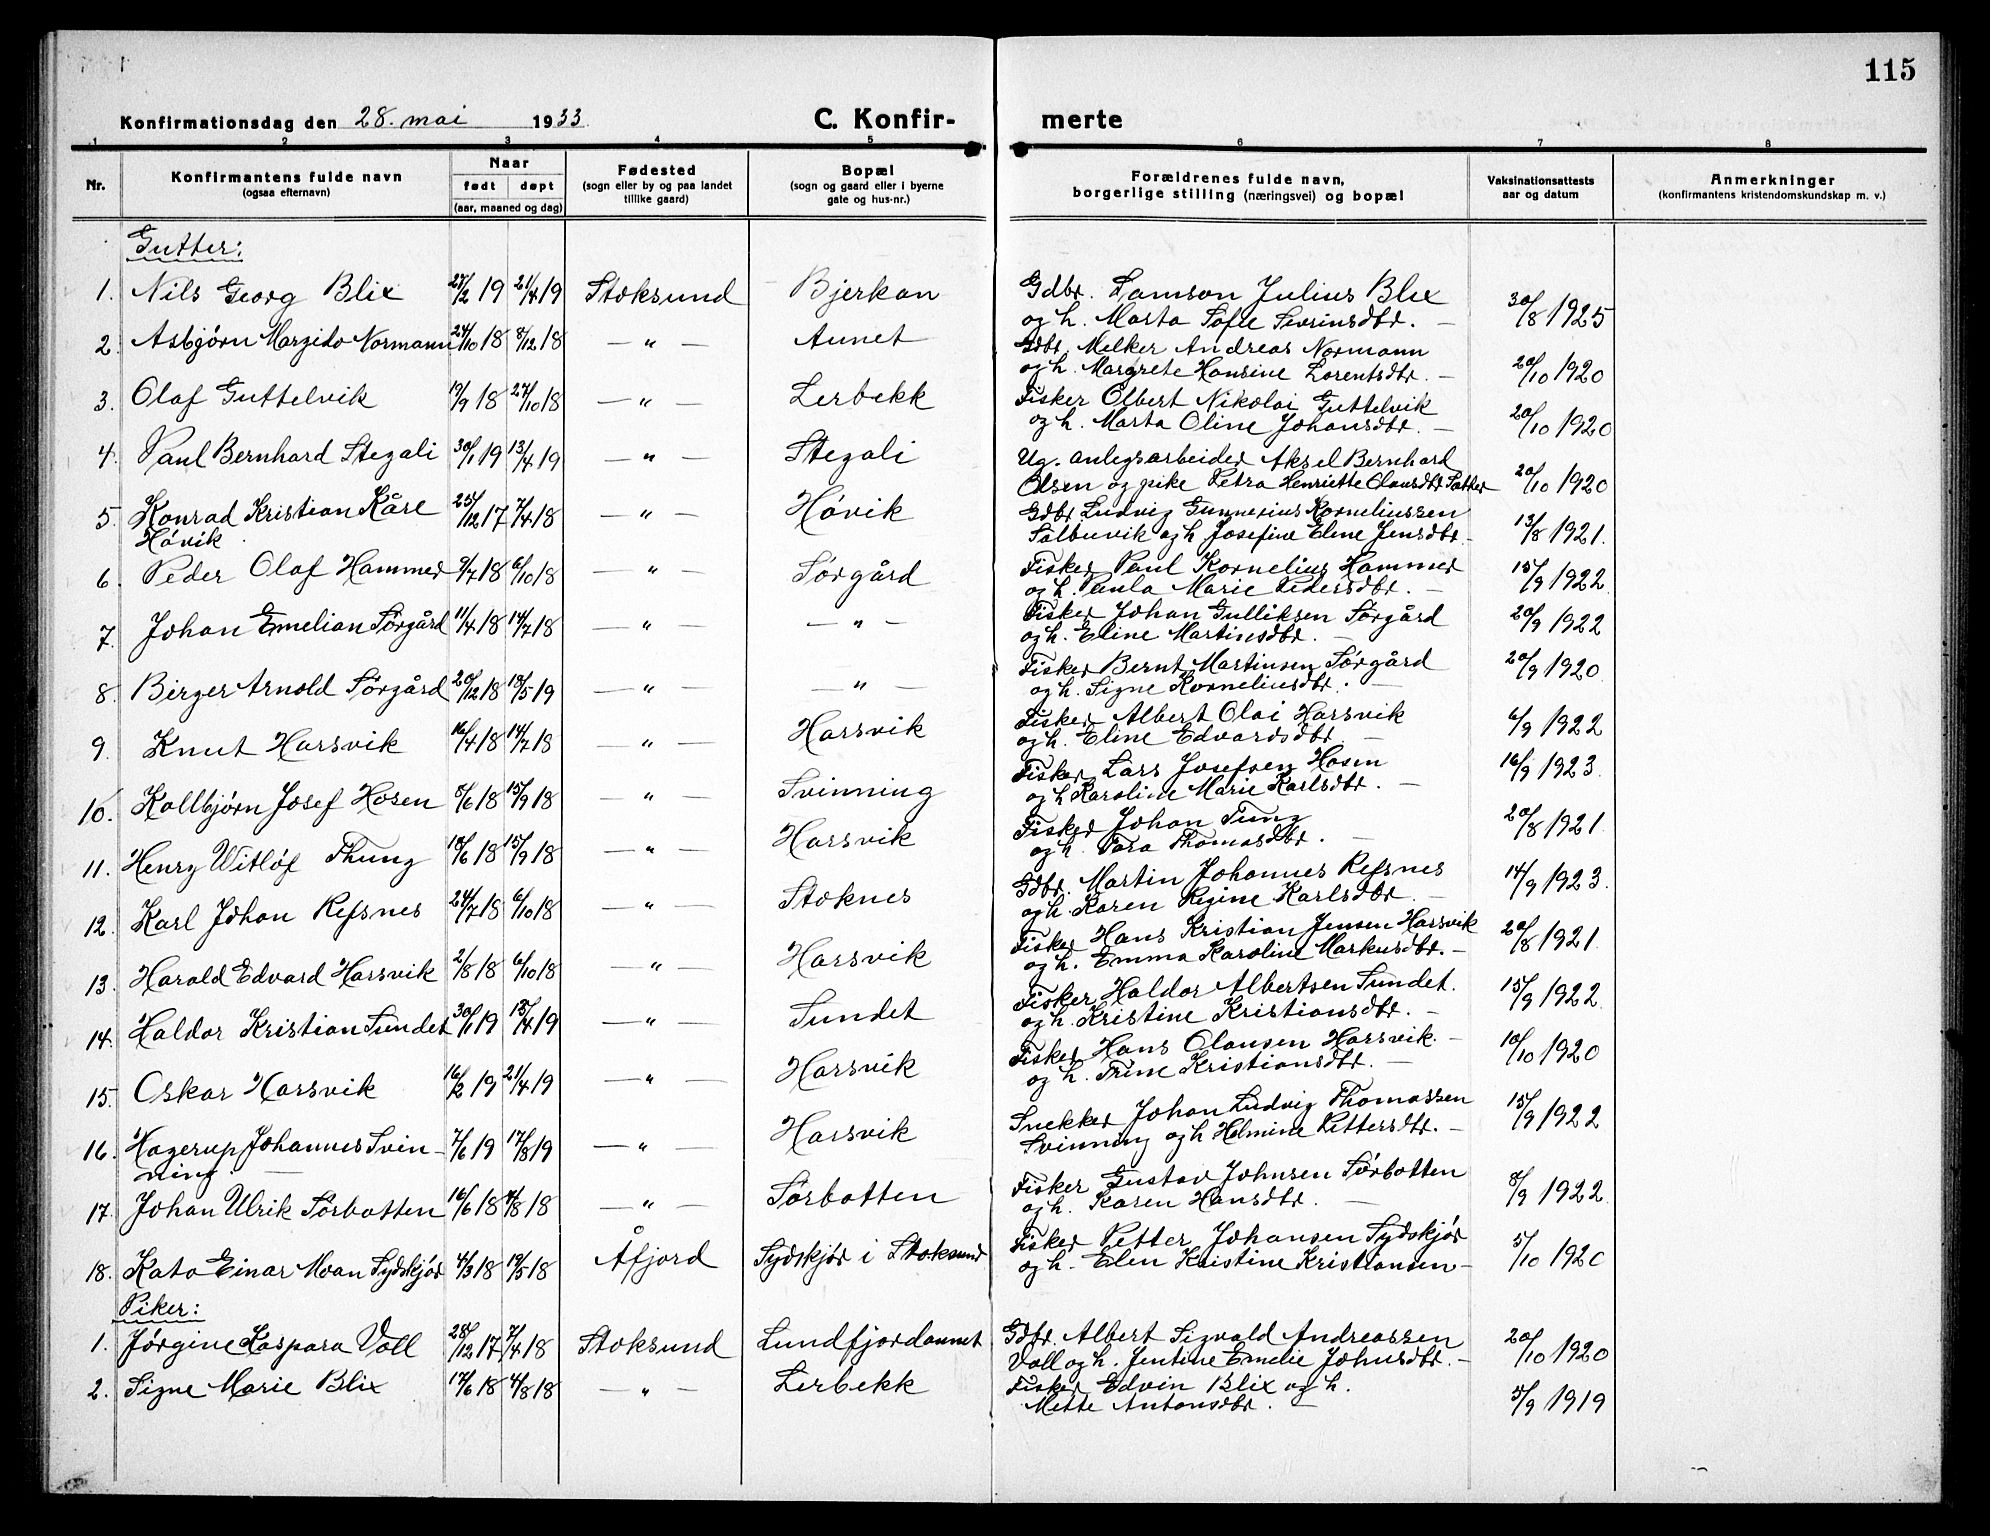 115
Konfirmationsdag den 28. mai 1933. C. Konfir- merte
1 2 3 4 5 6 7 8
Nr. Konfirmantens fulde navn (ogsaa efternavn) Naar født døpt (aar, maaned og dag) Fødested (sogn eller by og paa landet tillike gaard) Bopæl (sogn og gaard eller i byerne gate og hus-nr.) Forældrenes fulde navn, borgerlige stilling (næringsvei) og bopæl Vaksinationsattests aar og datum Anmerkninger (konfirmantens kristendomskundskap m. v.)
Gutter:
1. Nils Georg Blix 27/2 19 21/4 19 Stoksund Bjerkan Gdbr. Lamson Julius Blix
og h. Marta Sofie Sevrinsdtr. — 30/8 1925
2. Asbjørn Margido Normann 24/10 18 8/12 18 — " — Aunet Gdbr. Melker Andreas Normann
og h. Margrete Hansine Lorentsdtr. — 20/10 1920
3. Olaf Guttelvik 19/9 18 27/10 18 — " — Lerbekk Fisker Olbert Nikolai Guttelvik
og h. Marta Oline Johansdtr. — 20/10 1920
4. Paul Bernhard Stegali 30/1 19 13/4 19 — " — Stegali Ug. anlegsarbeider Aksel Bernhard
Olsen og pike Petra Henriette Olausdtr Sætter 20/10 1920
5. Konrad Kristian Kåre 25/12 17 7/4 18 — " — Høvik Gdbr. Ludvig Gunnerius Korneliussen
Høvik. Salbuvik og h. Josefine Eline Jensdtr. 13/8 1921.
6. Peder Olaf Hammer 9/7 18 6/10 18 — " — Sørgård Fisker Paul Kornelius Hammer
og h. Paula Marie Pedersdtr. — 15/9 1922
7. Johan Emelian Sørgård 11/4 18 14/7 18 — " — — " — Fisker Johan Gulliksen Sørgård
og h. Eline Martinsdtr. — 20/9 1922
8. Birger Arnold Sørgård 20/12 18 18/5 19 — " — — " — Fisker Bernt Martinsen Sørgård
og h. Signe Korneliusdtr. — 20/9 1920
9. Knut Harsvik 16/4 18 14/7 18 " — Harsvik Fisker Albert Olai Harsvik
og h. Eline Edvardsdtr. — 6/9 1922
10. Kolbjørn Josef Hosen 8/6 18 15/9 18 " — Svinning Fisker Lars Josefsen Hosen
og h Karoline Marie Karlsdtr. — 16/9 1923.
11. Henry Witløf Thung 18/6 18 15/9 18 — " — Harsvik Fisker Johan Tung
og h. Tora Thomasdtr. — 20/8 1921
12. Karl Johan Refsnes 24/7 18 6/10 18 — " — Stoknes Gdbr. Martin Johannes Refsnes
og h. Karen Regine Karlsdtr — 14/9 1923.
13. Harald Edvard Harsvik 2/8 18 6/10 18 — " — Harsvik Fisker Hans Kristian Jensen Harsvik
og h. Emma Karoline Markusdtr. — 20/8 1921.
14. Haldor Kristian Sundet 30/1 19 13/4 19 — " — Sundet Fisker Haldor Albertsen Sundet.
og h. Kristine Kristiansdtr. — 15/9 1922
15. Oskar Harsvik 16/2 19 21/4 19 — " — Harsvik Fisker Hans Olausen Harsvik. —
og h. Trine Kristiansdtr. — 10/10 1920
16. Hagerup Johannes Svin- 7/6 19 17/8 19 — " — Harsvik Snekker Johan Ludvig Thomassen
ning. — Svinning og h Helmine Pettersdtr. — 15/9 1922
17. Johan Ulrik Sørbotten 16/6 18 4/8 18 — " — Sørbotten Fisker Gustav Johnsen Sørbotten
og h. Karen Hansdtr. — 8/9 1922
18. Kato Einar Moan Sydskjør 4/3 18 19/5 18 Åfjord Sydskjør i Stoksund Fisker Petter Johansen Sydskjør
og h. Elen Kristine Kristiansen — 5/10 1920
Piker:
1. Jørgine Kaspara Voll 28/12 17 7/4 18 Stoksund Lundfjordaunet Gdbr. Albert Sigvald Andreassen
Voll og h. Jentine Emelie Johnsdtr. — 20/10 1920
2. Signe Marie Blix 17/6 18 4/8 18 — " — Lerbekk Fisker Edvin Blix og h.
Mette Antonsdtr. — 5/9 1919